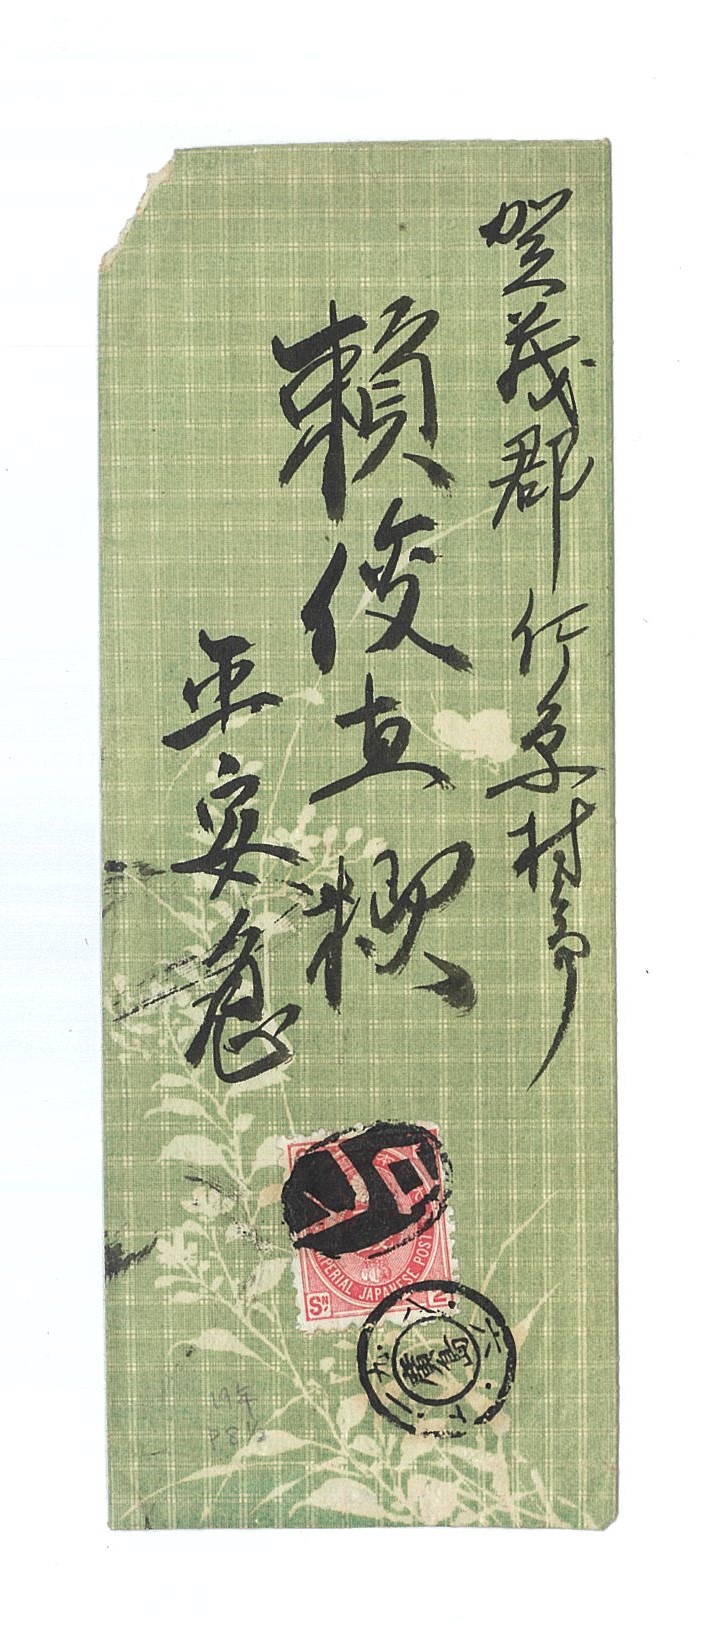 賀茂郡竹原村字
頼俊直様
平安急
IMPERIAL JAPANESE POST
SN 2
廣島
19年
P 8½